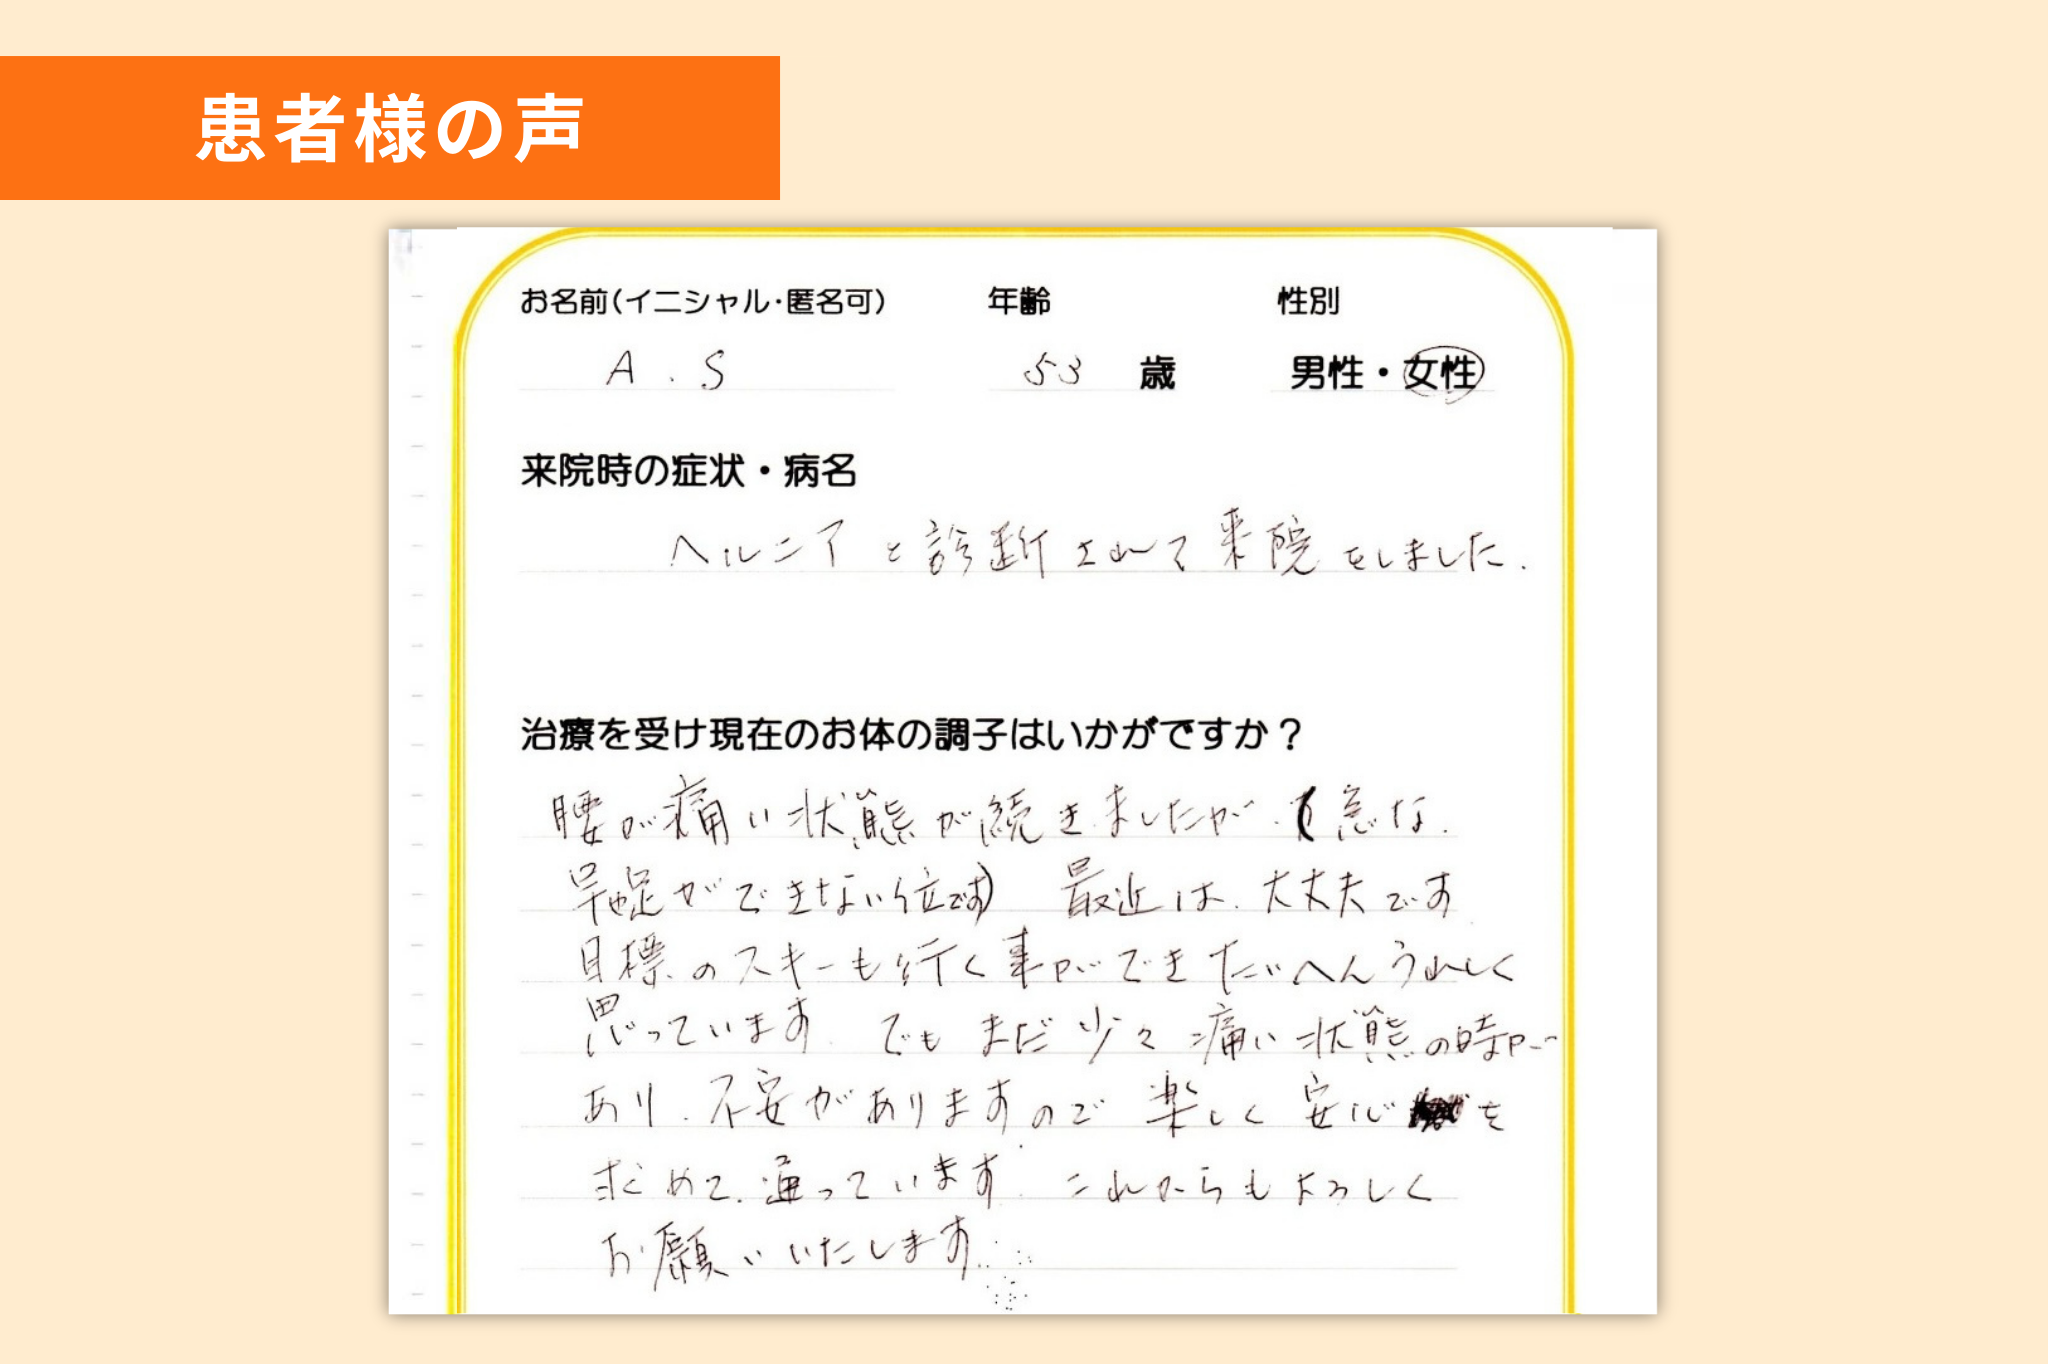 患者様の声
お名前(イニシャル・匿名可) 年齢 性別
A.S 53 歳 男性・女性
来院時の症状・病名
ヘルニアと診断されて来院をしました.
治療を受け現在のお体の調子はいかがですか？
腰が痛い状態が続きましたが.(急な.
早足ができない位です) 最近は.大丈夫です
目標のスキーも行く事ができたいへんうれしく
思っています. でもまだ少々痛い状態の時が
あり.不安がありますので楽しく安心を
求めて.通っています.これからもよろしく
お願いいたします.